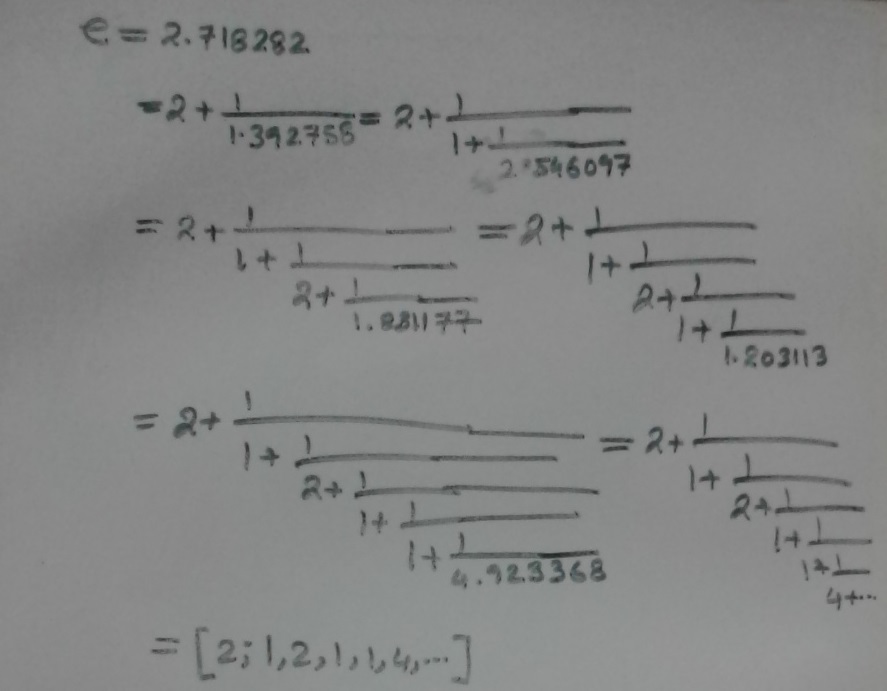 e = 2.718282
= 2 + 1/1.392758 = 2 + 1/(1 + 1/2.546097)
= 2 + 1/(1 + 1/(2 + 1/1.831177)) = 2 + 1/(1 + 1/(2 + 1/(1 + 1/1.203113)))
= 2 + 1/(1 + 1/(2 + 1/(1 + 1/(1 + 1/4.923368)))) = 2 + 1/(1 + 1/(2 + 1/(1 + 1/(1 + 1/(4 + ...)))))
= [2; 1, 2, 1, 1, 4, ...]